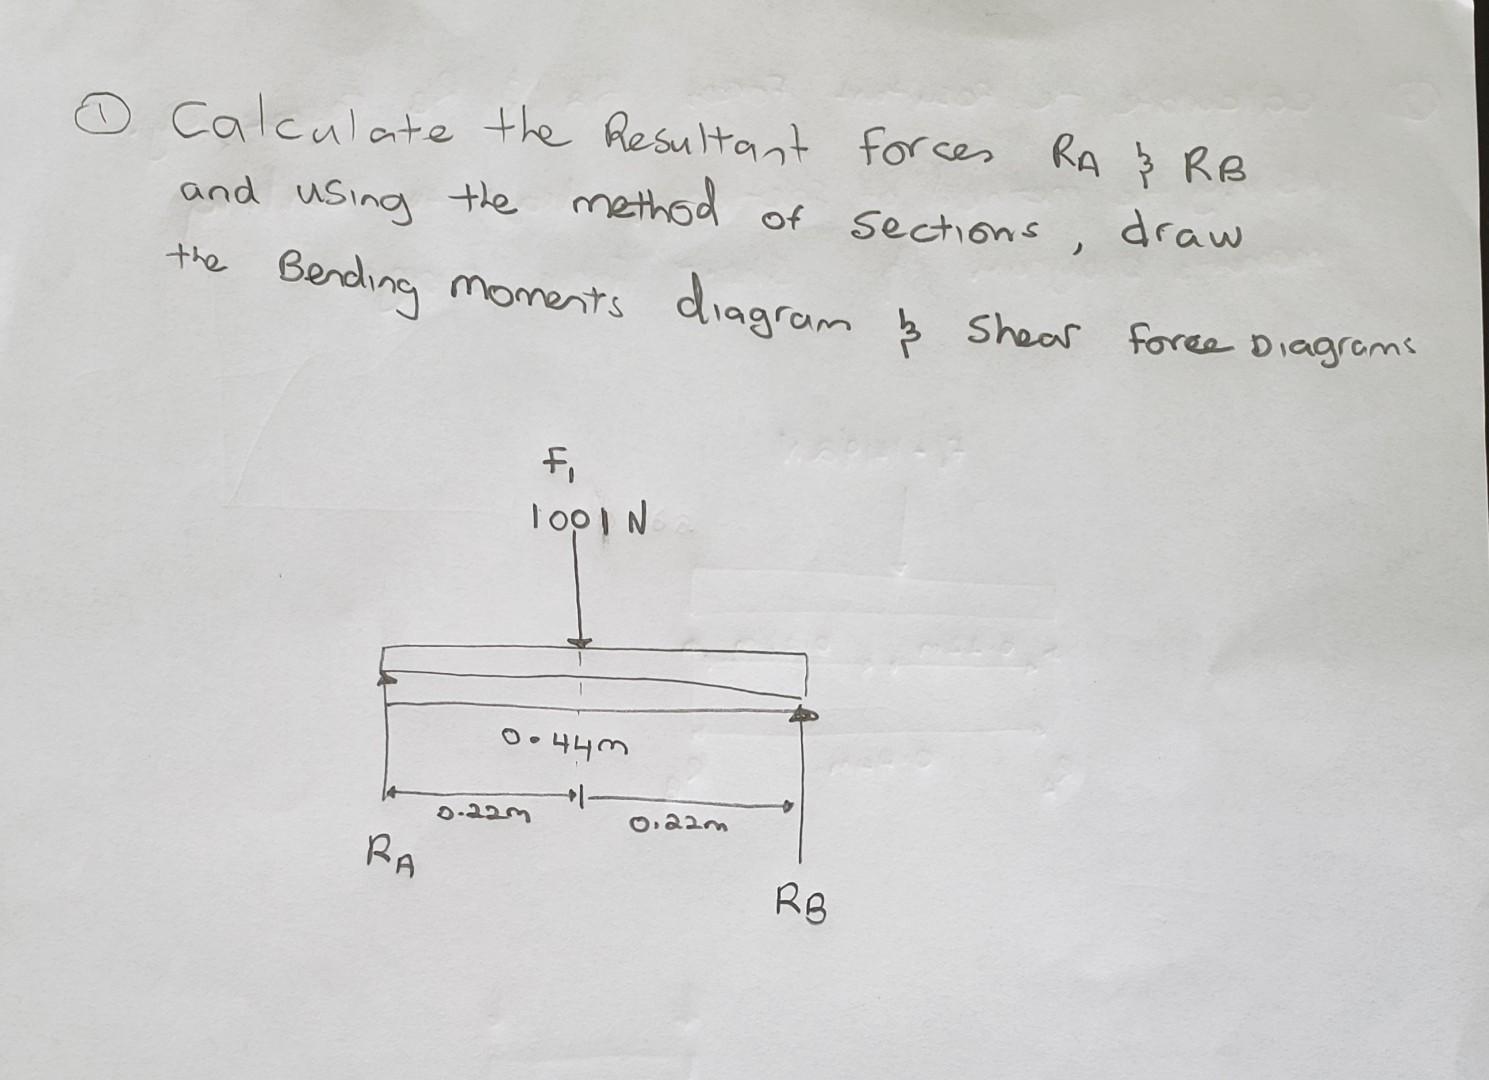 ① Calculate the Resultant forces RA & RB
and using the method of sections, draw
the Bending moments diagram & Shear force Diagrams
F1
1001 N
0.44m
0.22m
0.22m
RA
RB